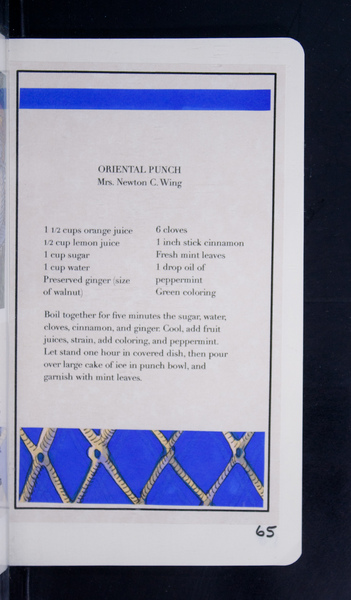 ORIENTAL PUNCH
Mrs. Newton C. Wing
1 1/2 cups orange juice
1/2 cup lemon juice
1 cup sugar
1 cup water
Preserved ginger (size
of walnut)
6 cloves
1 inch stick cinnamon
Fresh mint leaves
1 drop oil of
peppermint
Green coloring
Boil together for five minutes the sugar, water,
cloves, cinnamon, and ginger. Cool, add fruit
juices, strain, add coloring, and peppermint.
Let stand one hour in covered dish, then pour
over large cake of ice in punch bowl, and
garnish with mint leaves.
65